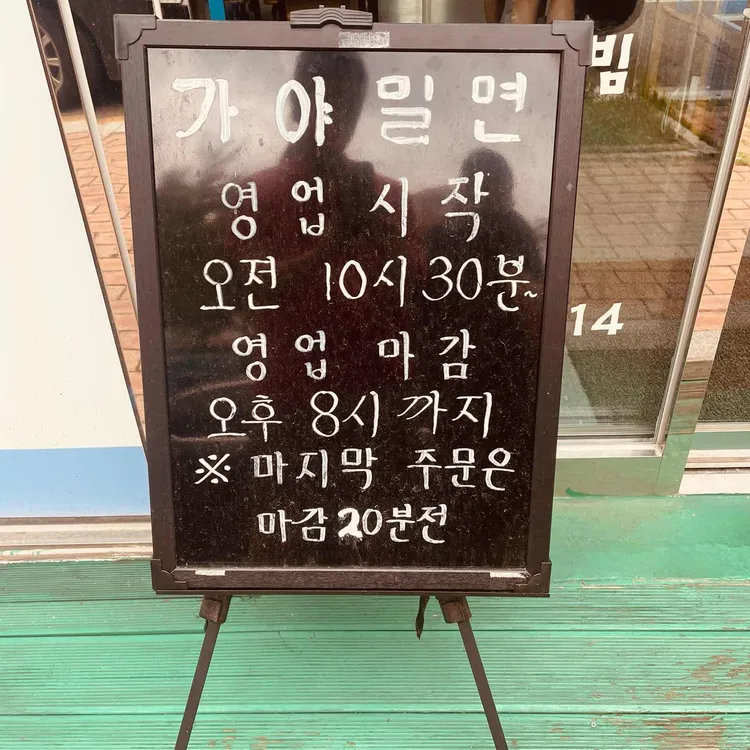 가야밀면
영업 시작
오전 10시 30분~
영업 마감
오후 8시 까지
※ 마지막 주문은
마감 20분전
빔
14